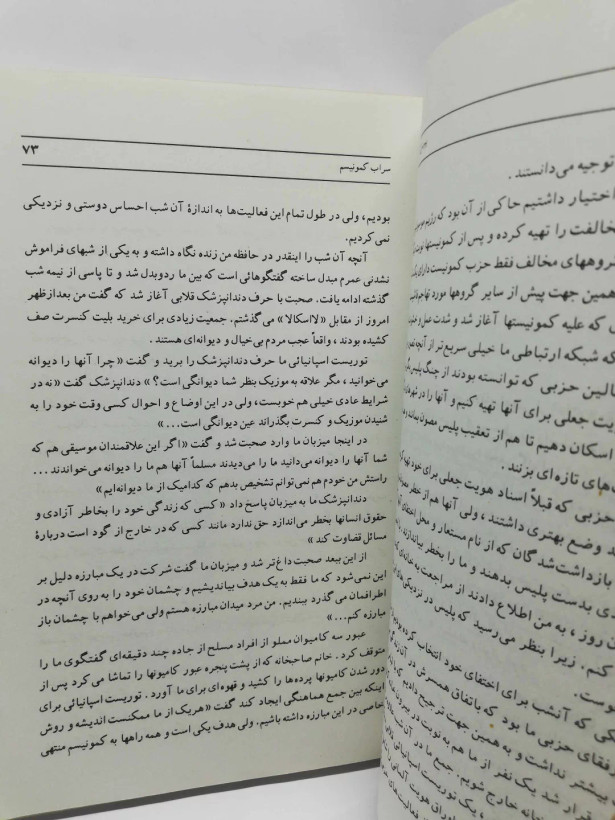 توجیه می‌دانستند .
اختیار داشتیم حاکی از آن بود که رژیم
مخالفت را تهیه کرده و پس از کمونیستها نوبت
گروههای مخالف فقط حزب کمونیست دارای
همین جهت پیش از سایر گروهها مورد تهاجم
ی که علیه کمونیستها آغاز شد و شدت عمل و
که شبکه ارتباطی ما خیلی سریع‌تر از آنچه
الین حزبی که توانسته بودند از چنگ پلیس
ویت جعلی برای آنها تهیه کنیم و آنها را در
اسکان دهیم تا هم از تعقیب پلیس مصون بمانند و
های تازه‌ای بزنند .
حزبی که قبلاً اسناد هویت جعلی برای خود تهیه
د وضع بهتری داشتند ، ولی آنها هم از خطر
بازداشت‌شدگان که از نام مستعار و محل
دی بدست پلیس بدهند و ما را بخطر بیاندازند
ن روز ، به من اطلاع دادند از مراجعت به خانه‌ای که
کنم. زیرا بنظر می‌رسید که پلیس در نزدیکی
وست.
یکی که آنشب برای اختفای خود انتخاب کرده بودیم
رفقای حزبی ما بود که باتفاق همسرش در آن
بیشتر نداشت و به همین جهت ترجیح دادیم که
قرار شد یک نفر از ما هم به نوبت در
خانه خارج شویم. جمع ما در آن شب
، یک توریست اسپانیائی
اوراق هویت آلمانی
فعالیت‌های
سراب کمونیسم
۷۳
بودیم ، ولی در طول تمام این فعالیت‌ها به اندازهٔ آن شب احساس دوستی و نزدیکی
نمی‌کردیم.
آنچه آن شب را اینقدر در حافظه من زنده نگاه داشته و به یکی از شبهای فراموش
نشدنی عمرم مبدل ساخته گفتگوهائی است که بین ما ردوبدل شد و تا پاسی از نیمه شب
گذشته ادامه یافت. صحبت با حرف دندانپزشک قلابی آغاز شد که گفت من بعدازظهر
امروز از مقابل «لااسکالا» می‌گذشتم. جمعیت زیادی برای خرید بلیت کنسرت صف
کشیده بودند ، واقعاً عجب مردم بی‌خیال و دیوانه‌ای هستند .
توریست اسپانیائی ما حرف دندانپزشک را برید و گفت « چرا آنها را دیوانه
می‌خوانید ، مگر علاقه به موزیک بنظر شما دیوانگی است؟ » دندانپزشک گفت «نه در
شرایط عادی خیلی هم خوبست، ولی در این اوضاع و احوال کسی وقت خود را به
شنیدن موزیک و کنسرت بگذراند عین دیوانگی است...»
در اینجا میزبان ما وارد صحبت شد و گفت «اگر این علاقمندان موسیقی هم که
شما آنها را دیوانه می‌دانید ما را می‌دیدند مسلماً آنها هم ما را دیوانه می‌خواندند ...
راستش من خودم هم نمی‌توانم تشخیص بدهم که کدامیک از ما دیوانه‌ایم»
دندانپزشک ما به میزبان پاسخ داد « کسی که زندگی خود را بخاطر آزادی و
حقوق انسانها بخطر می‌اندازد حق ندارد مانند کسی که در خارج از گود است دربارهٔ
مسائل قضاوت کند »
از این ببعد صحبت داغ‌تر شد و میزبان ما گفت شرکت در یک مبارزه دلیل بر
این نمی‌شود که ما فقط به یک هدف بیاندیشیم و چشمان خود را به روی آنچه در
اطرافمان می‌گذرد ببندیم. من مرد میدان مبارزه هستم ولی می‌خواهم با چشمان باز
مبارزه کنم...»
عبور سه کامیوان مملو از افراد مسلح از جاده چند دقیقه‌ای گفتگوی ما را
متوقف کرد . خانم صاحبخانه که از پشت پنجره عبور کامیونها را تماشا می کرد پس از
دور شدن کامیونها پرده‌ها را کشید و قهوه‌ای برای ما آورد . توریست اسپانیائی برای
اینکه بین جمع هماهنگی ایجاد کند گفت «هریک از ما ممکنست اندیشه و روش
خاصی در این مبارزه داشته باشیم. ولی هدف یکی است و همه راهها به کمونیسم منتهی